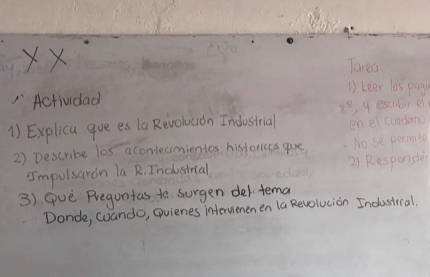 X X
Actividad
1) Explica que es la Revolución Industrial
2) Describe los acontecimientos historicos que
Impulsarón la R. Industrial
3) Qué Preguntas te surgen del tema
Donde, cuándo, Quienes intervienen en la Revolución Industrial.
Tarea.
1) Leer las pagi
y escribir el
en el cuaderno
No se permite
2) Responder